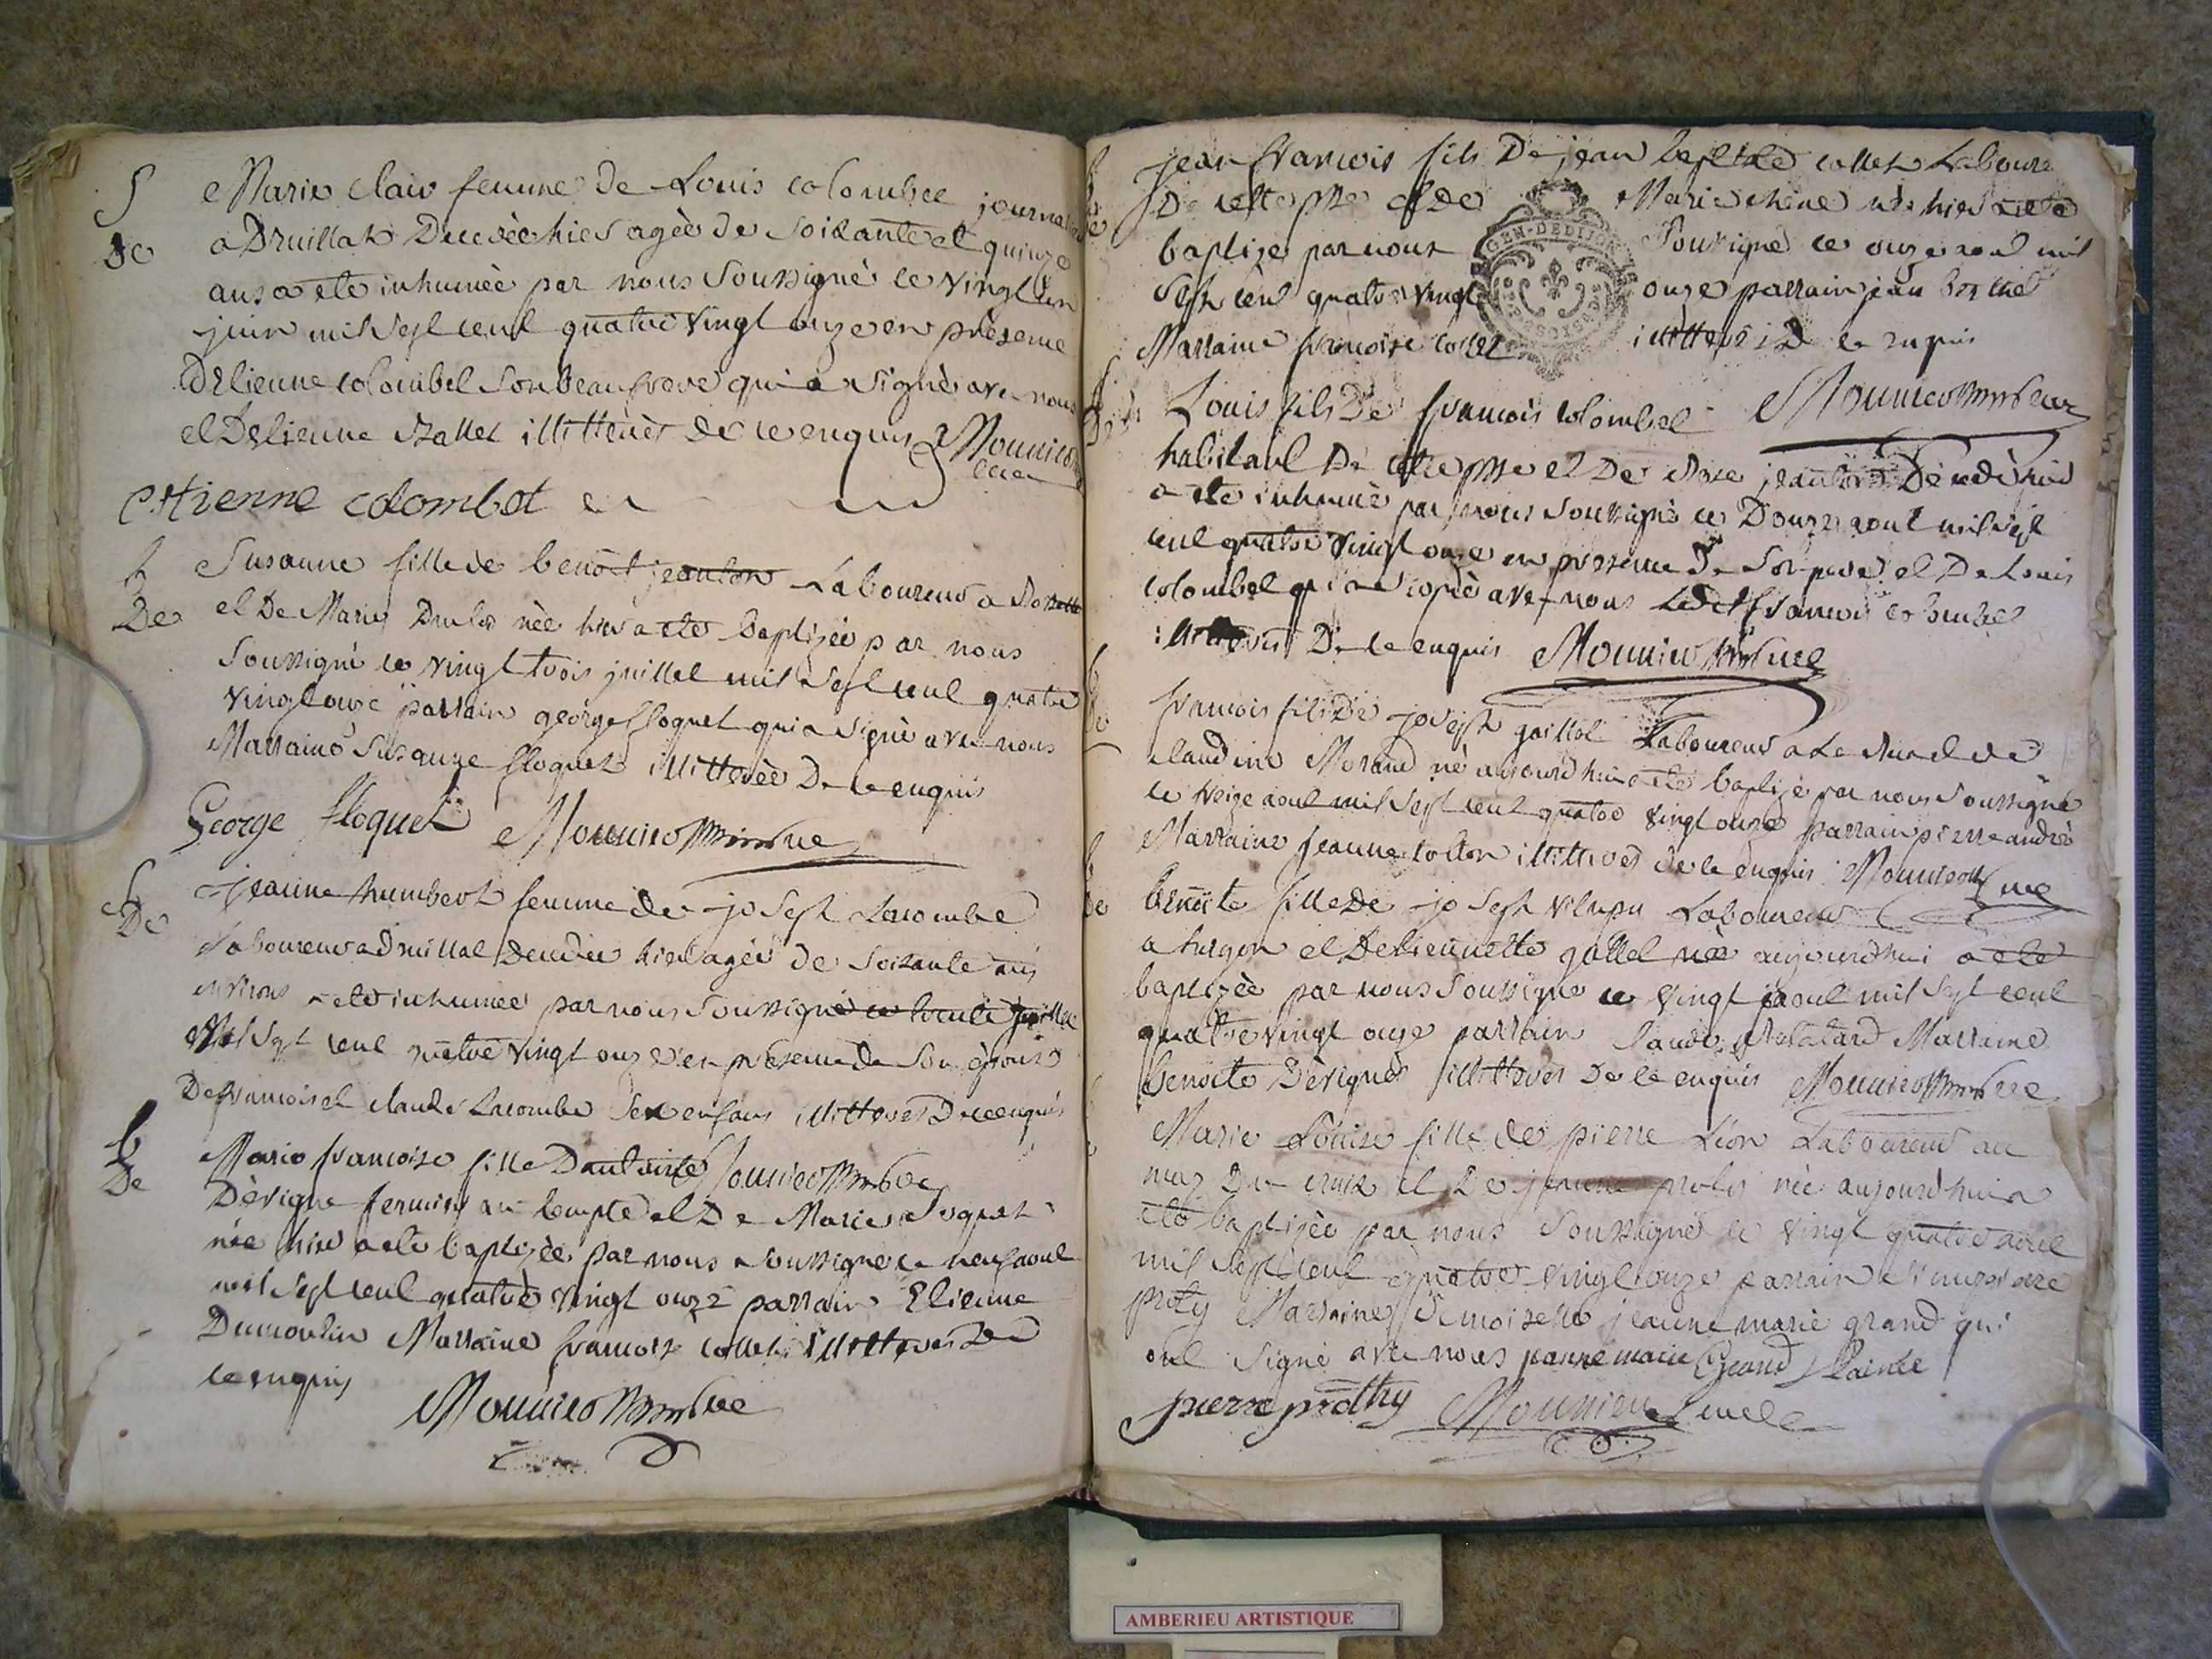 S
De
Marie clair femme de Louis colombet
a Druillat Decedée hier agée de soixante et quinze
ans a ete inhumée par nous soussigné le vingt un
juin mil sept cent quatre vingt onze en presence
D'etienne colombet son beaufrere qui a signé avec nous
et D'etienne illitterés de ce enquis Mounier
curé
etienne colombet
b
De
Susanne fille de benoit jeanton Laboureur a
et De Marie née hier a ete baptizée par nous
soussigné le vingt trois juillet mil sept cent quatre
vingt onze parrain george floquet qui a signé avec nous
Marraine Susanne floquet illitterée De ce enquis
George floquet Mounier curé
S
De
jeanne humbert femme de joseph Lacombe
Laboureur a druillat Decedée hier agée de soixante ans
environs a ete inhumée par nous soussigné ce trente juillet
Mil sept cent quatre vingt onze en presence de son epoux
De francois et claude Lacombe ses enfans illitterés De ce enquis
b
De
Marie francoise fille D'antoine Mounier curé
Dévigne fermier au temple et De Marie
née hier a ete baptizée par nous soussigné le neuf aout
mil sept cent quatre vingt onze parrain Etienne
Dumoulin Marraine francoise collet illitterés De
ce enquis Mounier curé
jean francois fils De jean baptiste collet Laboure
De cette psse et De Marie née hier a ete
baptize par nous soussigné le onze aout mil
sept cent quatre vingt onze parrain jean
Marraine francoise collet illitterés De ce enquis
GEN. DE DIJON
Mounier curé
Louis fils De francois colombet
habitant De cette psse et De jeanton Decedé hier
a ete inhumé par nous soussigné le Douze aout mil sept
cent quatre vingt onze en presence De son pere et De Louis
colombet qui a signé avec nous Ledit francois colombet
illitteré De ce enquis Mounier curé
francois fils De joseph gaillot Laboureur a
claudine Morand né aujourd'hui a ete baptizé par nous soussigné
le treize aout mil sept cent quatre vingt onze parrain pierre andré
Marraine jeanne illitterés de ce enquis Mounier curé
De
benoite fille De joseph Laboureur
a turgon et D'etiennette gallet née aujourd'hui a ete
baptizée par nous soussigné le vingt aout mil sept cent
quatre vingt onze parrain claude Marraine
benoite Dévigne illitterés De ce enquis Mounier curé
Marie Louise fille de pierre Léon Laboureur au
maz De la croix et De jeanne proty née aujourd'hui a
ete baptizée par nous soussigné le vingt quatre aout
mil sept cent quatre vingt onze parrain
proty Marraine Demoiselle jeanne marie grand qui
ont signé avec nous jeanne marie Grand
pierre prothy Mounier curé
AMBERIEU ARTISTIQUE